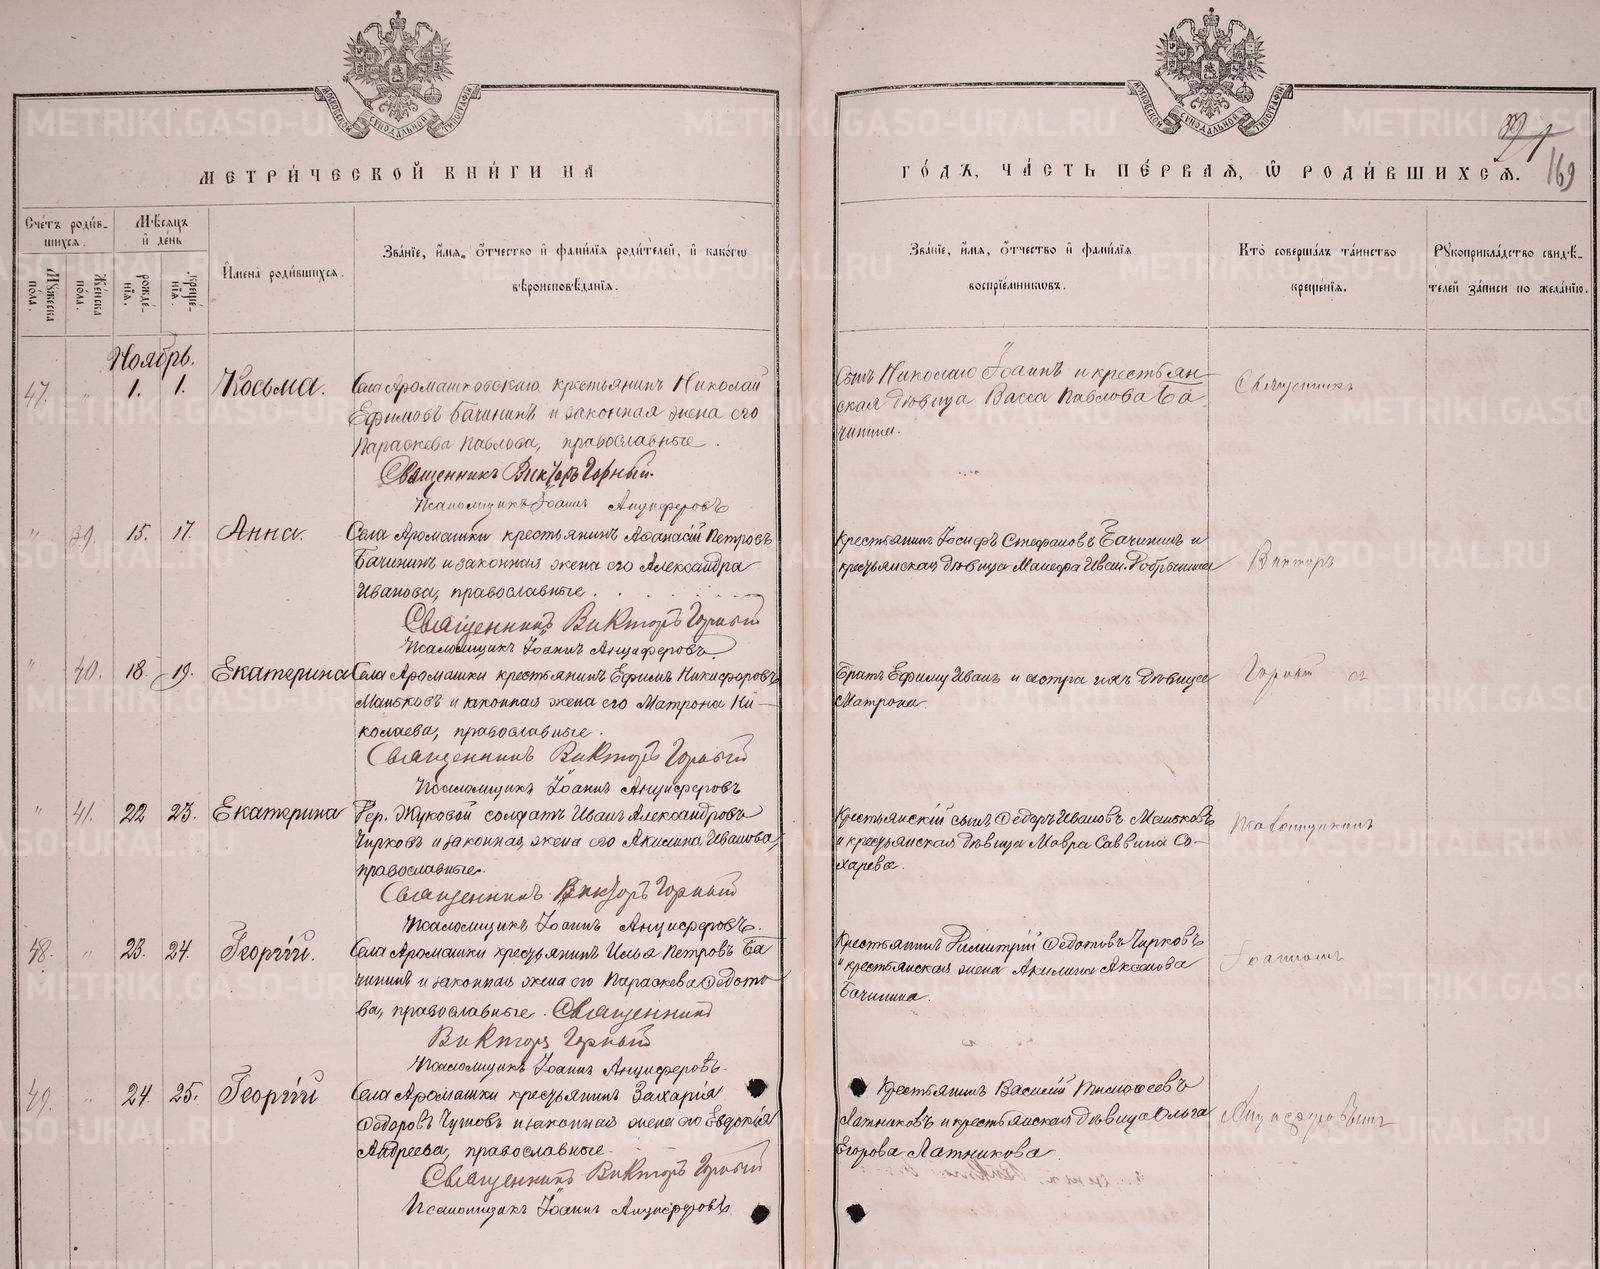 МЕТРИ́ЧЕСКОЙ КНИ́ГИ НА
ГО́ДЪ, ЧА́СТЬ ПЕ́РВАꙖ, Ѿ РОДИ́ВШИХСѦ.
169
Сче́тъ роди́в-
шихсѧ.
Мꙋ́жеска по́ла.
Же́нска по́ла.
Мѣ́сѧцъ
и҆ де́нь
рожде́-
нїѧ.
креще́-
нїѧ.
И҆мена̀ роди́вшихсѧ.
Зва́нїе, и҆́мѧ, ѻ҆́тчество и҆ фами́лїѧ роди́телей, и҆ како́гѡ
вѣроисповѣ́данїѧ.
Зва́нїе, и҆́мѧ, ѻ҆́тчество и҆ фами́лїѧ
воспрїе́мникѡвъ.
Кто̀ соверша́лъ та́инство
креще́нїѧ.
Рꙋкоприкла́дство свидѣ́-
телей за́писи по жела́нїю.
Ноябрь.
47. " 1. 1. Косьма.
Села Аромашковскаго крестьянинъ Николай
Ефимовъ Бачининъ и законная жена его
Параскева Павлова, православные.
Священникъ Викторъ Горный.
Псаломщикъ Іоаннъ Анциферовъ
Сынъ Николаю Іоаннъ и крестьян-
ская дѣвица Васса Павлова Ба-
чинина.
Священникъ
" 39. 15. 17. Анна.
Села Аромашки крестьянинъ Аѳанасій Петровъ
Бачининъ и законная жена его Александра
Иванова, православные.
Священникъ Викторъ Горный
Псаломщикъ Іоаннъ Анциферовъ.
Крестьянинъ Іосифъ Стефановъ Бачининъ и
крестьянская дѣвица Манефа Иван.
Викторъ
" 40. 18. 19. Екатерина
Села Аромашки крестьянинъ Ефимъ Никифоровъ
Маньковъ и законная жена его Матрона Ни-
колаева, православные.
Священникъ Викторъ Горный
Псаломщикъ Іоаннъ Анциферовъ
Братъ Ефиму Иванъ и сестра ихъ дѣвица
Матрона.
Горный съ
" 41. 22 23. Екатерина
Дер. Жуковой солдатъ Иванъ Александровъ
Чирковъ и законная жена его Акилина Иванова,
православные.
Священникъ Викторъ Горный
Псаломщикъ Іоаннъ Анциферовъ.
Крестьянскій сынъ Ѳедоръ Ивановъ Маньковъ
и крестьянская дѣвица Мавра Саввина Со-
харева.
Псаломщикомъ
48. " 23. 24. Георгій.
Села Аромашки крестьянинъ Илья Петровъ Ба-
чининъ и законная жена его Параскева Ѳедото-
ва, православные. Священникъ
Викторъ Горный
Псаломщикъ Іоаннъ Анциферовъ.
Крестьянинъ Димитрій Ѳедотовъ Чирковъ
и крестьянская жена Акилина Аксенова
Бачинина.
Іоанномъ
49. " 24. 25. Георгій
Села Аромашки крестьянинъ Захарія
Ѳедоровъ Чушовъ и законная жена его Евдокія
Андреева, православные.
Священникъ Викторъ Горный
Псаломщикъ Іоаннъ Анциферовъ
Крестьянинъ Василій Тимоѳеевъ
Латниковъ и крестьянская дѣвица Ольга
Егорова Латникова.
Анциферовымъ
METRIKI.GASO-URAL.RU